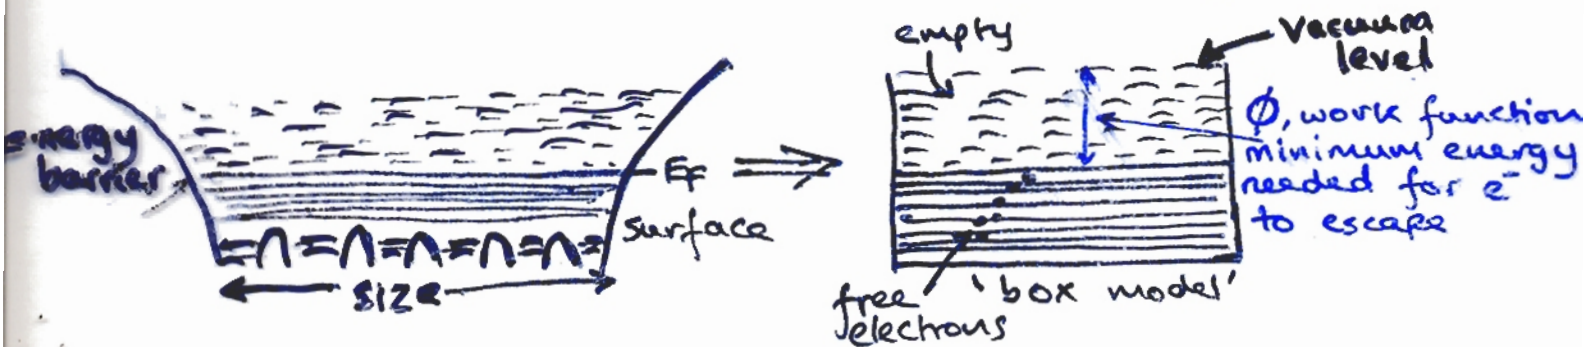 energy
barrier
size
EF
surface
empty
Vacuum
level
Ø, work function
minimum energy
needed for e⁻
to escape
free
electrons
'box model'